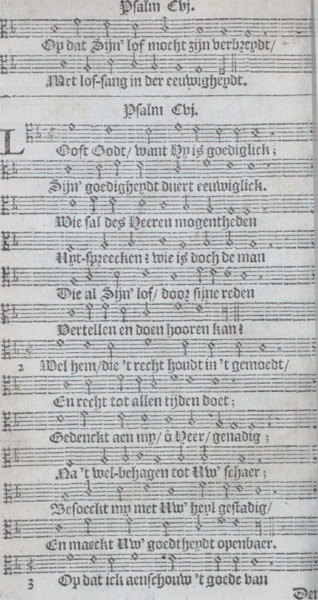 Psalm Cvj.
Op dat Sijn' lof mocht zijn verbreydt/
Met lof-sang in der eeuwigheydt.
Psalm Cvj.
LOoft Godt/ want Hy is goediglick;
Sijn' goedigheydt duert eeuwiglick.
Wie sal des Heeren mogentheden
Uyt-spreecken? wie is doch de man
Die al Sijn' lof/ door sijne reden
Vertellen en doen hooren kan?
2 Wel hem/ die 't recht houdt in 't gemoedt/
En recht tot allen tijden doet;
Gedenckt aen my/ ô Heer/ genadig;
Na 't wel-behagen tot Uw' schaer;
Besoeckt my met Uw' heyl gestadig/
En maeckt Uw' goedtheydt openbaer.
3 Op dat ick aenschouw 't goede van
Der